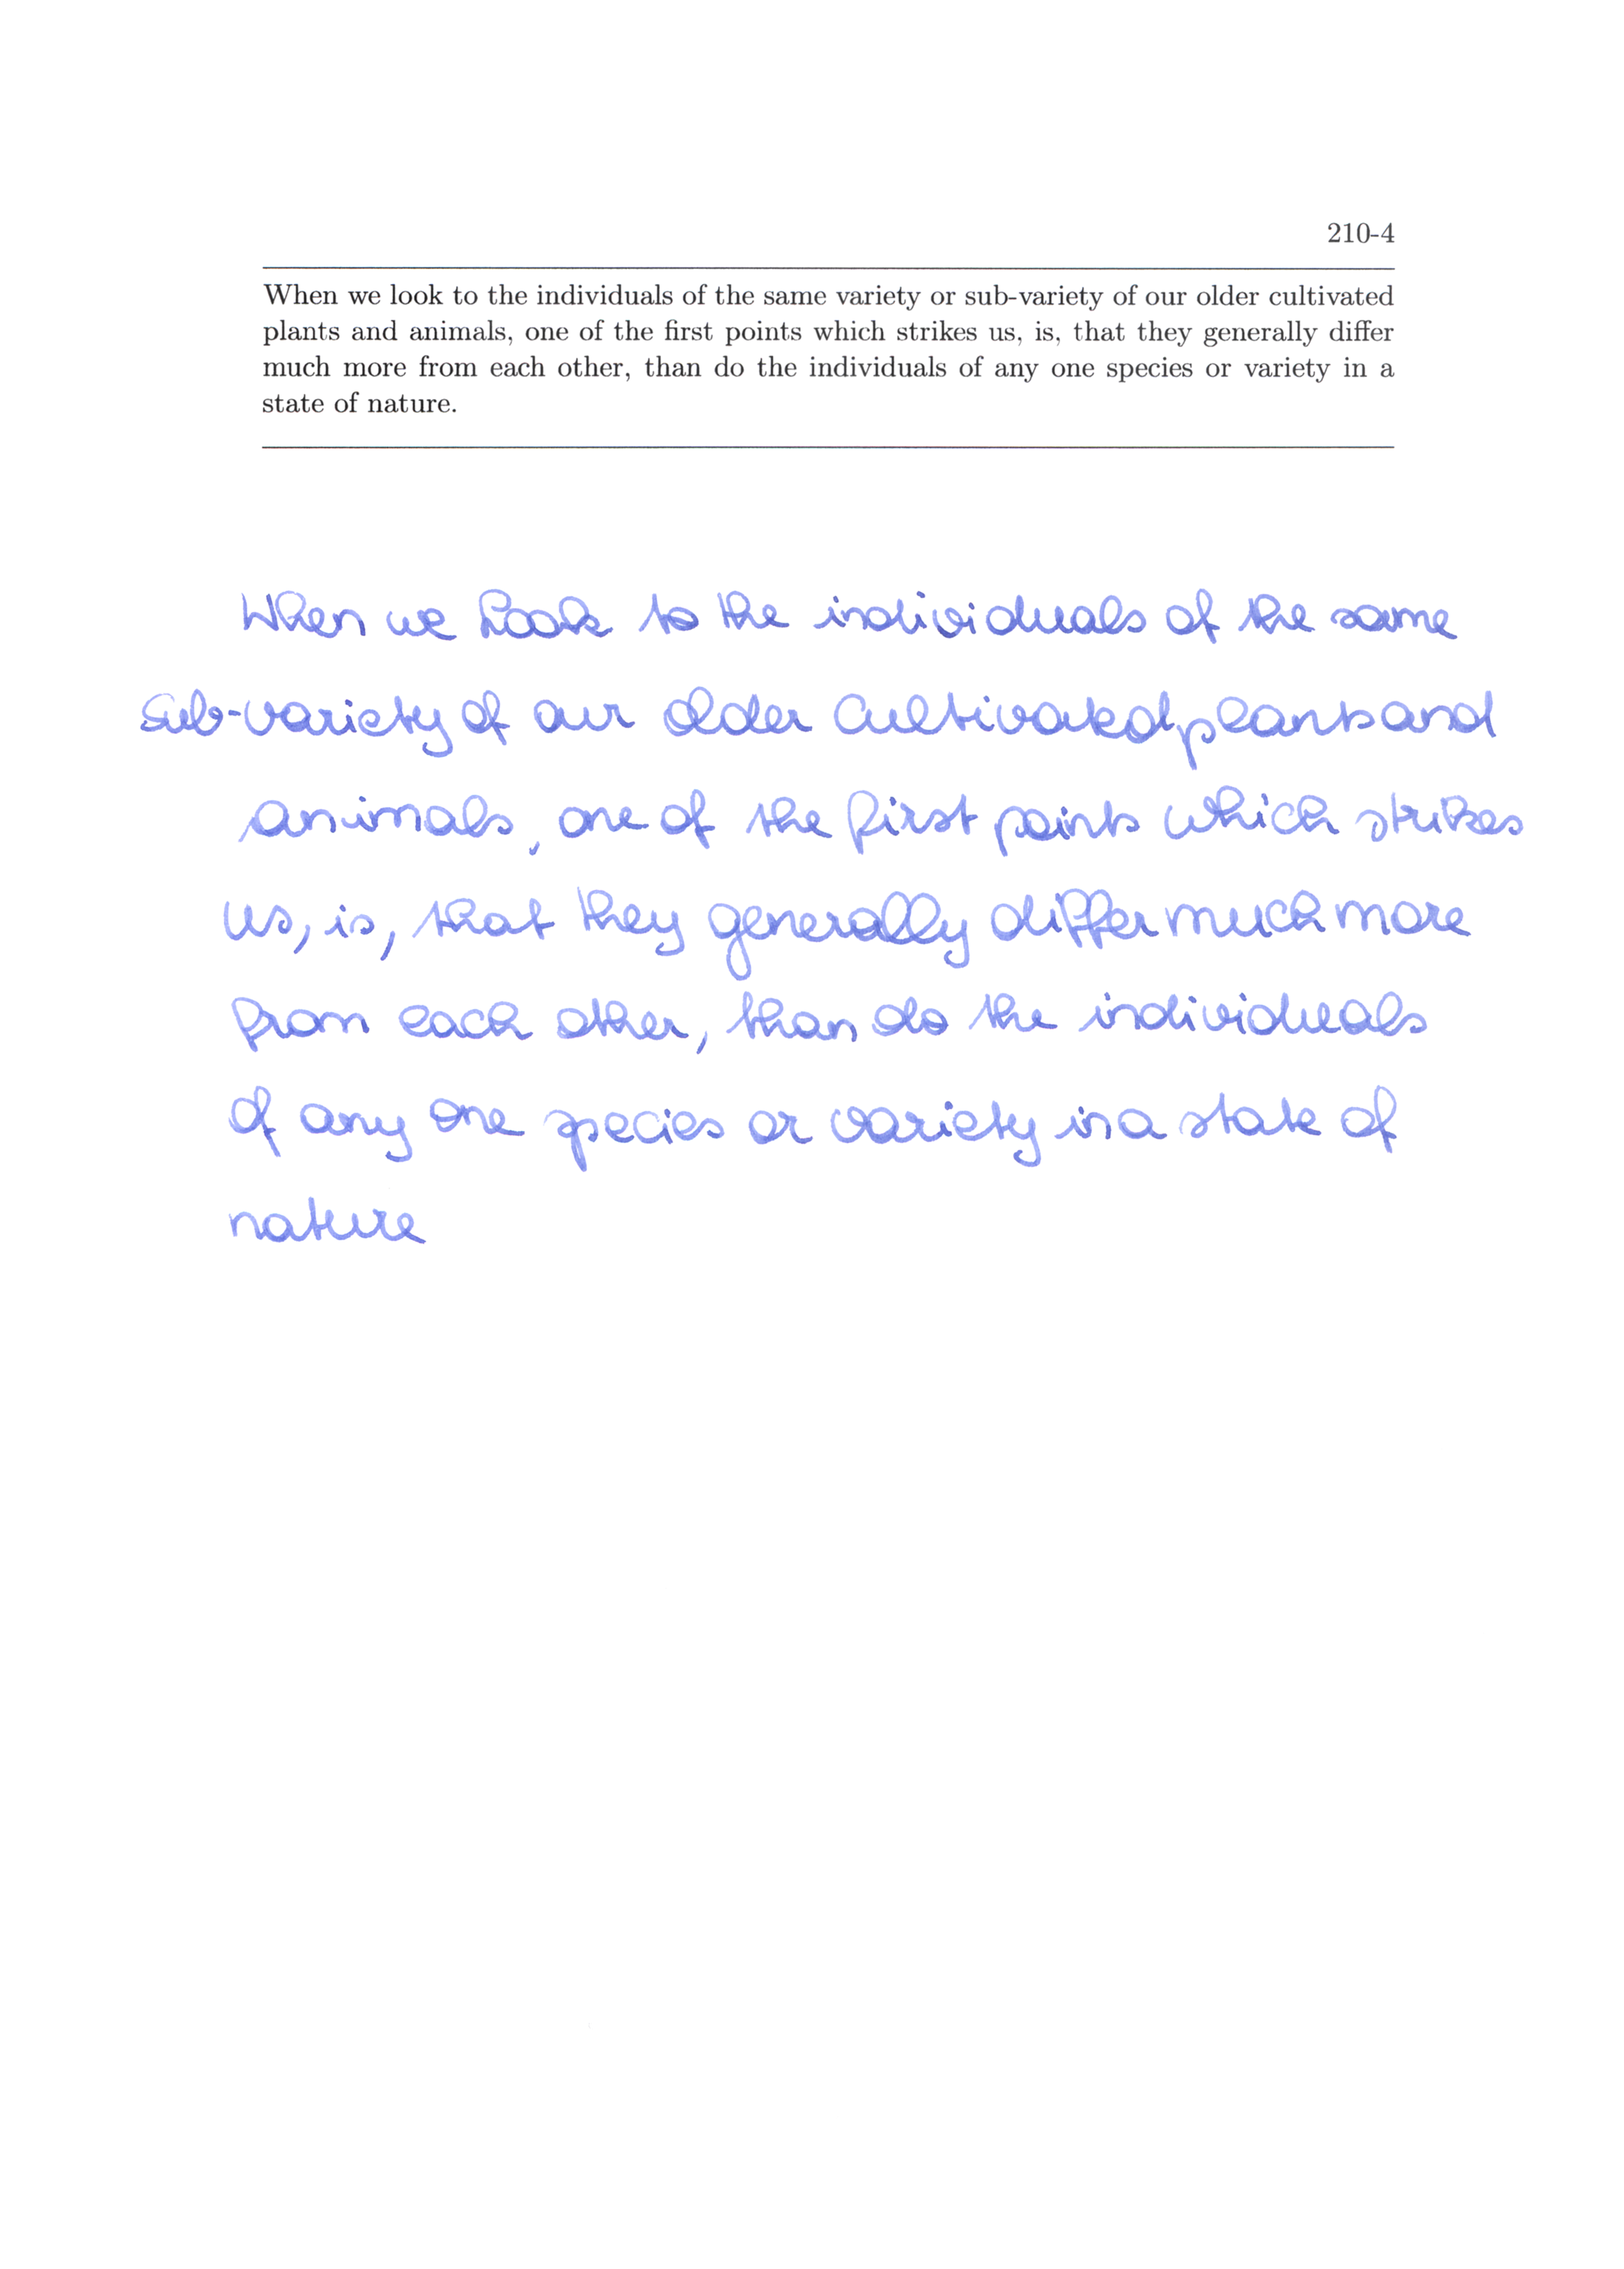 210-4
When we look to the individuals of the same variety or sub-variety of our older cultivated
plants and animals, one of the first points which strikes us, is, that they generally differ
much more from each other, than do the individuals of any one species or variety in a
state of nature.
When we look to the individuals of the same
sub-variety of our older cultivated plants and
animals, one of the first points which strikes
us, is, that they generally differ much more
from each other, than do the individuals
of any one species or variety in a state of
nature